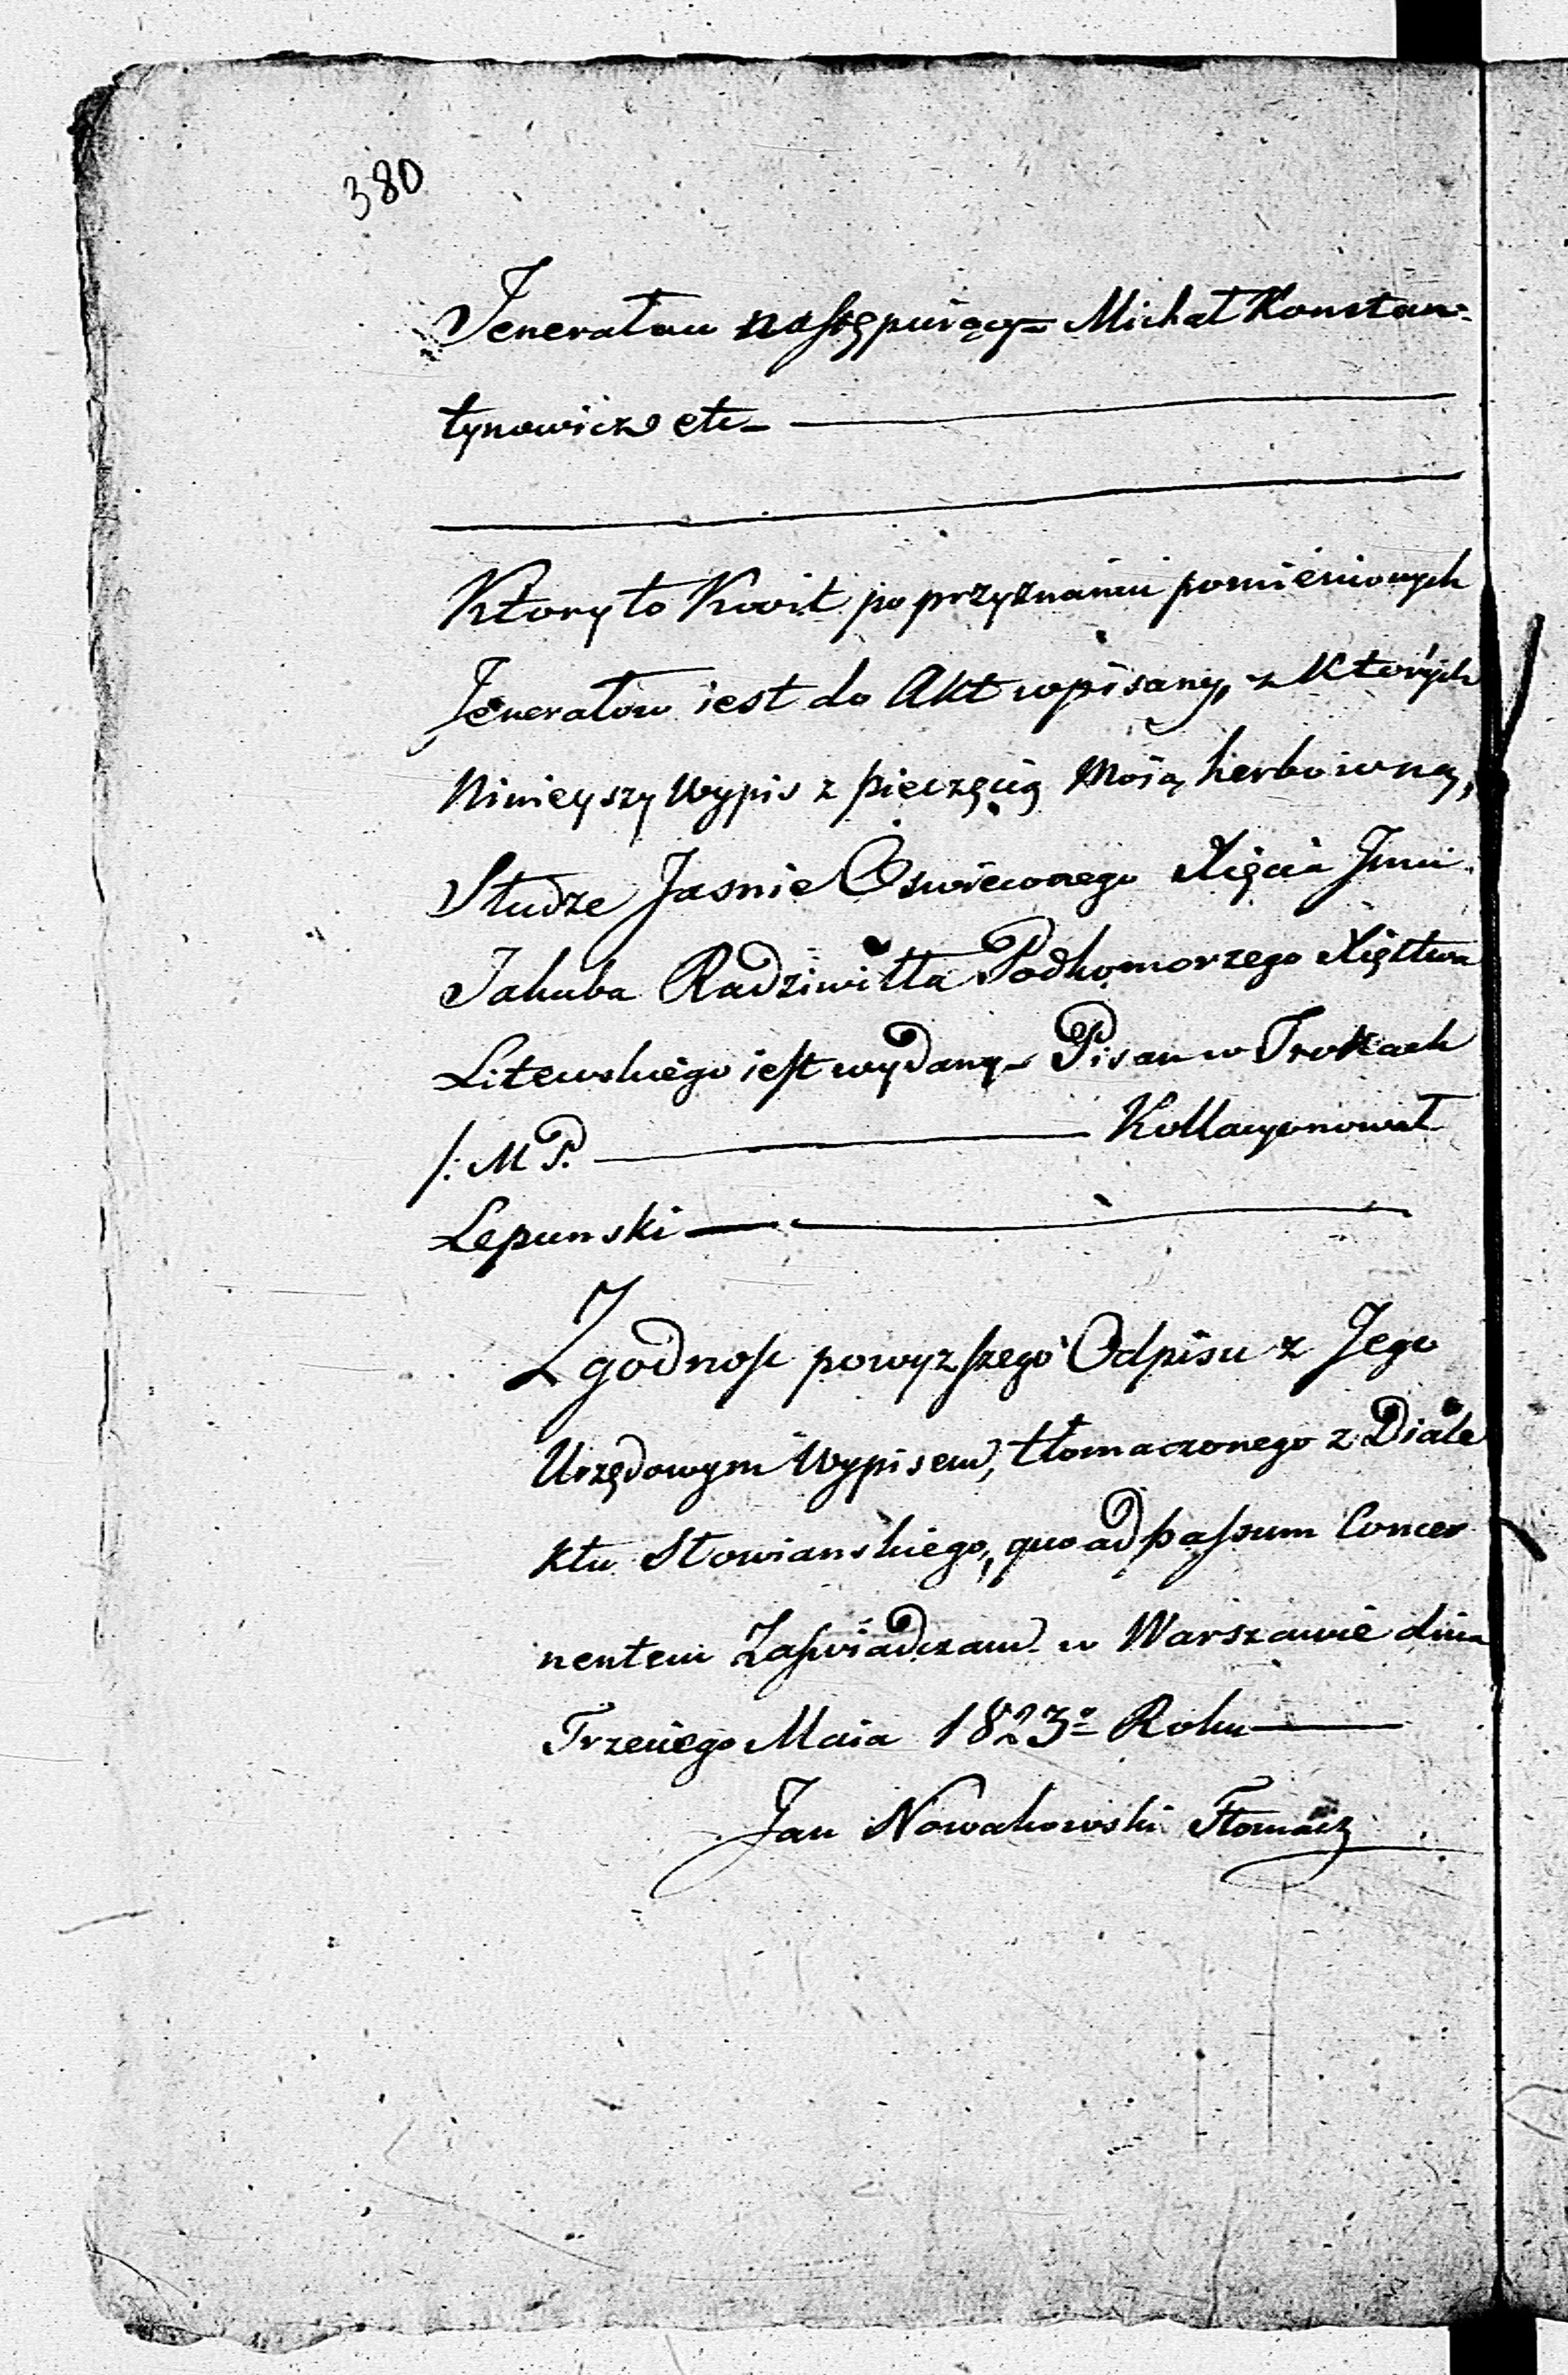 380
Jenerałow następuiący= Michał Konstan=
tynowicz etc_
Ktory to Kwit po przyznaniu pomienionych
Jenerałow iest do Akt wpisany, z Których
Ninieyszy Wypis z pieczęcią Moią herbowną,
Słudze Jasnie Oswieconego Xięcia Jmci
Jakuba Radziwiłła Podkomorzego Xięstwa
Litewskiego iest wydany_ Pisan w Trokach
/: M P. Kollacyonował
Lepunski
Zgodnosc powyzszego Odpisu z Jego
Urzędowym Wypisem, tłomaczonego z Diale
ktu Słowianskiego, quo ad passum Concer
nentem Zaswiadczam w Warszawie dnia
Trzeciego Maia 1823º Roku
Jan Nowakowski Tłomacz